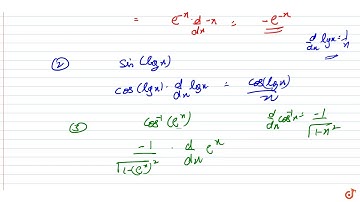 = e^-x · d/dx -x = -e^-x
d/dx lgx = 1/x
② sin(lgx)
cos(lgx) · d/dx lgx = cos(lgx)/x
③ cos^-1(e^x) d/dx cos^-1x = -1/√1-x²
-1/√1-(e^x)² · d/dx e^x